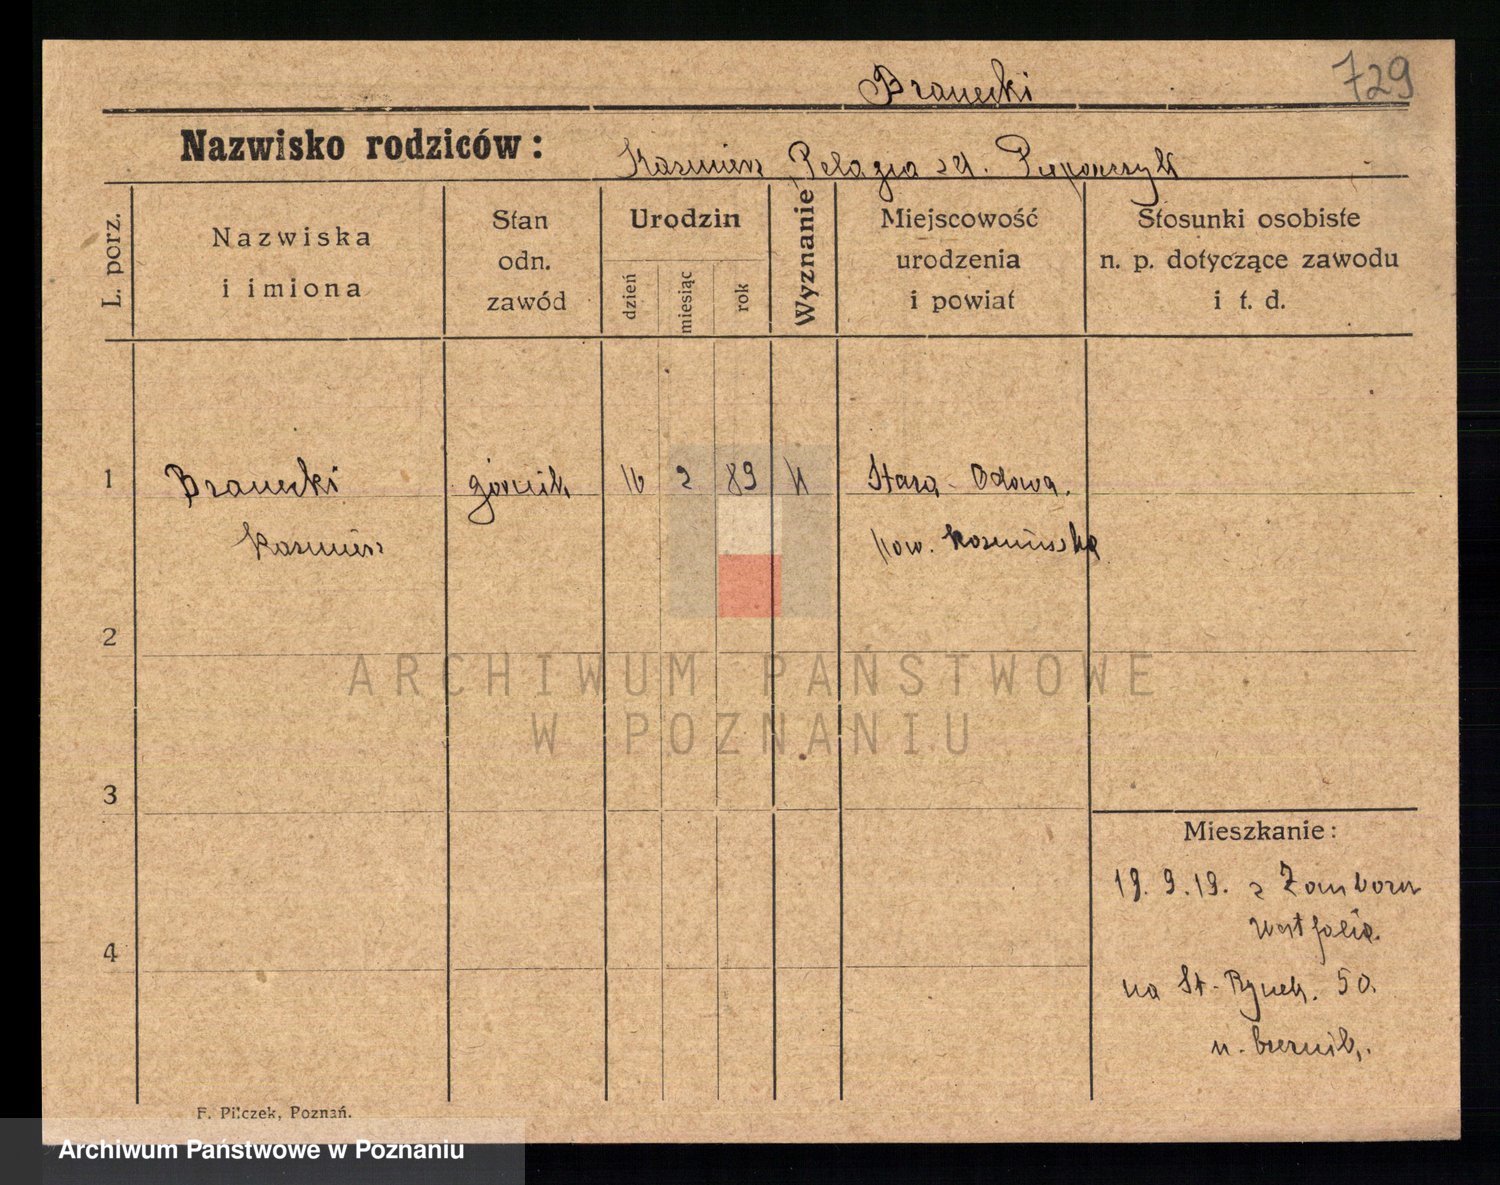 Branecki
729
Nazwisko rodziców:
Kazimierz Pelagia
L. porz.
Nazwiska
i imiona
Stan
odn.
zawód
Urodzin
dzień
miesiąc
rok
Wyznanie
Miejscowość
urodzenia
i powiat
Stosunki osobiste
n. p. dotyczące zawodu
i t. d.
1
Branecki
górnik
16
2
89
k
Stara - Odowa.
Kazimierz
pow.
2
3
4
Mieszkanie:
19. 9. 19. z
Westfalia
na St. Rynek. 50.
F. Pilczek, Poznań.
ARCHIWUM PAŃSTWOWE
W POZNANIU
Archiwum Państwowe w Poznaniu